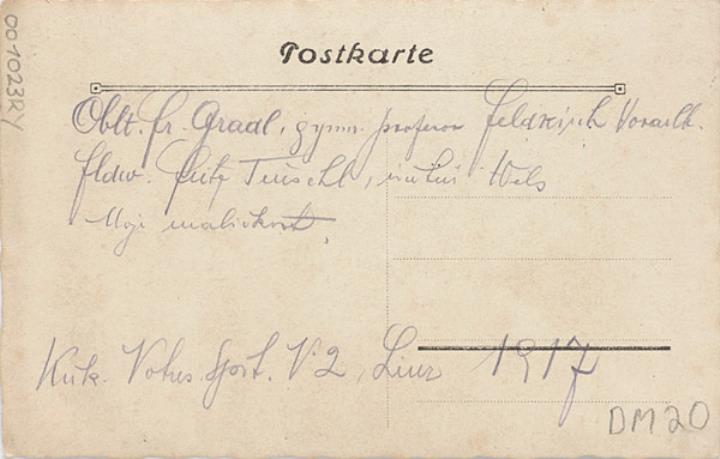 001023RY
Postkarte
Oblt. fr. Gradl, gymn. profesor Feldkirch Vorarlb.
fldw. Fritz Teuschl, Wels
Moji malickost,
K.u.k. V 2, Linz 1917
DM20